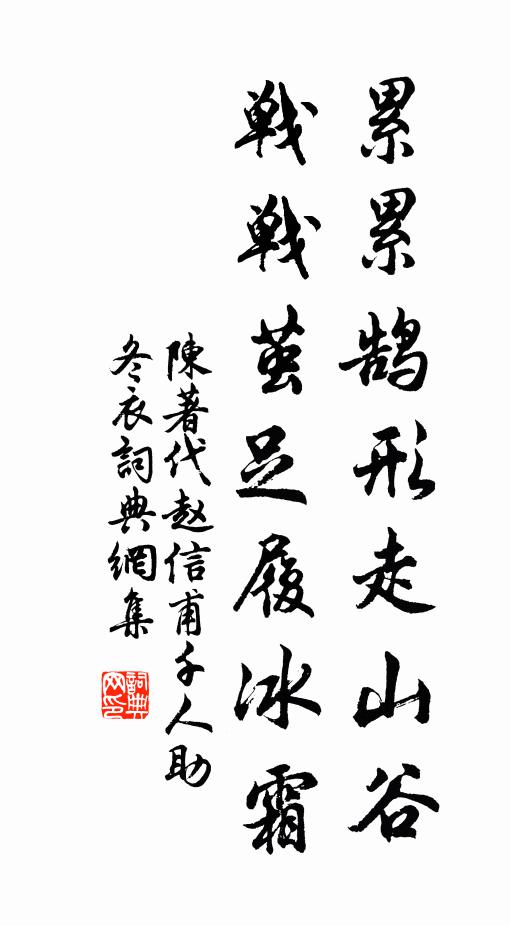 累累鹄形走山谷
戦戦茧足履冰霜
陳著代赵信甫千人助
冬衣詞典網集
詞典
网印